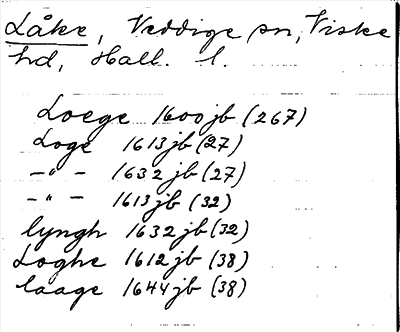 Låke, Veddige sn, Viske
hd, Hall. l.
Loege 1600 jb (267)
Loge 1613 jb (27)
–"– 1632 jb (27)
–"– 1613 jb (32)
lyngh 1632 jb (32)
Loghe 1612 jb (38)
laage 1644 jb (38)